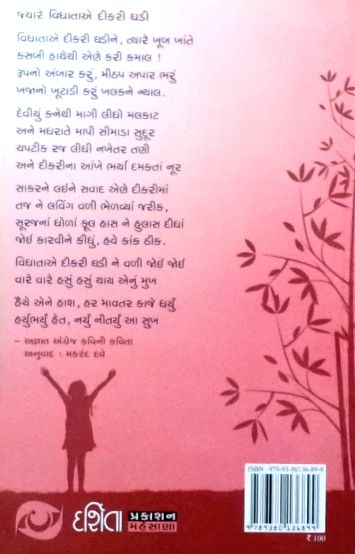 જ્યારે વિધાતાએ દીકરી ઘડી
વિધાતાએ દીકરી ઘડીને, ત્યારે ખૂબ ખાંતે
કસબી હાથેથી એણે કરી કમાલ !
રૂપનો અંબાર કરું, મીઠપ અપાર ભરું
ખજાનો ખૂટાડી કરું ખલકને ન્યાલ.
દેવીયું કનેથી માગી લીધો મલકાટ
અને મધરાતે માપી સીમાડા સુદૂર
ચપટીક રજ લીધી નખેતર તણી
અને દીકરીના આંખે ભર્યા દમકતાં નૂર
સાકરને લઈને સવાદ એણે દીકરીમાં
તજ ને લવિંગ વળી ભેળવ્યાં જરીક,
સૂરજનાં ધોળાં ફૂલ હાસ ને હુલાસ દીધાં
જોઈ કારવીને કીધું, હવે કાંક ઠીક.
વિધાતાએ દીકરી ઘડી ને વળી જોઈ જોઈ
વારે વારે હસું હસું થાય એનું મુખ
હૈયે એને હાશ, હર માવતર કાજે ધર્યું
હર્યુંભર્યું હેત, નર્યું નીતર્યું આ સુખ
– અજ્ઞાત અંગ્રેજ કવિની કવિતા
અનુવાદ : મકરંદ દવે
ISBN : 978-93-80136-89-9
9789380136899
₹ 100
દર્શિતા
પ્રકાશન
મહેસાણા